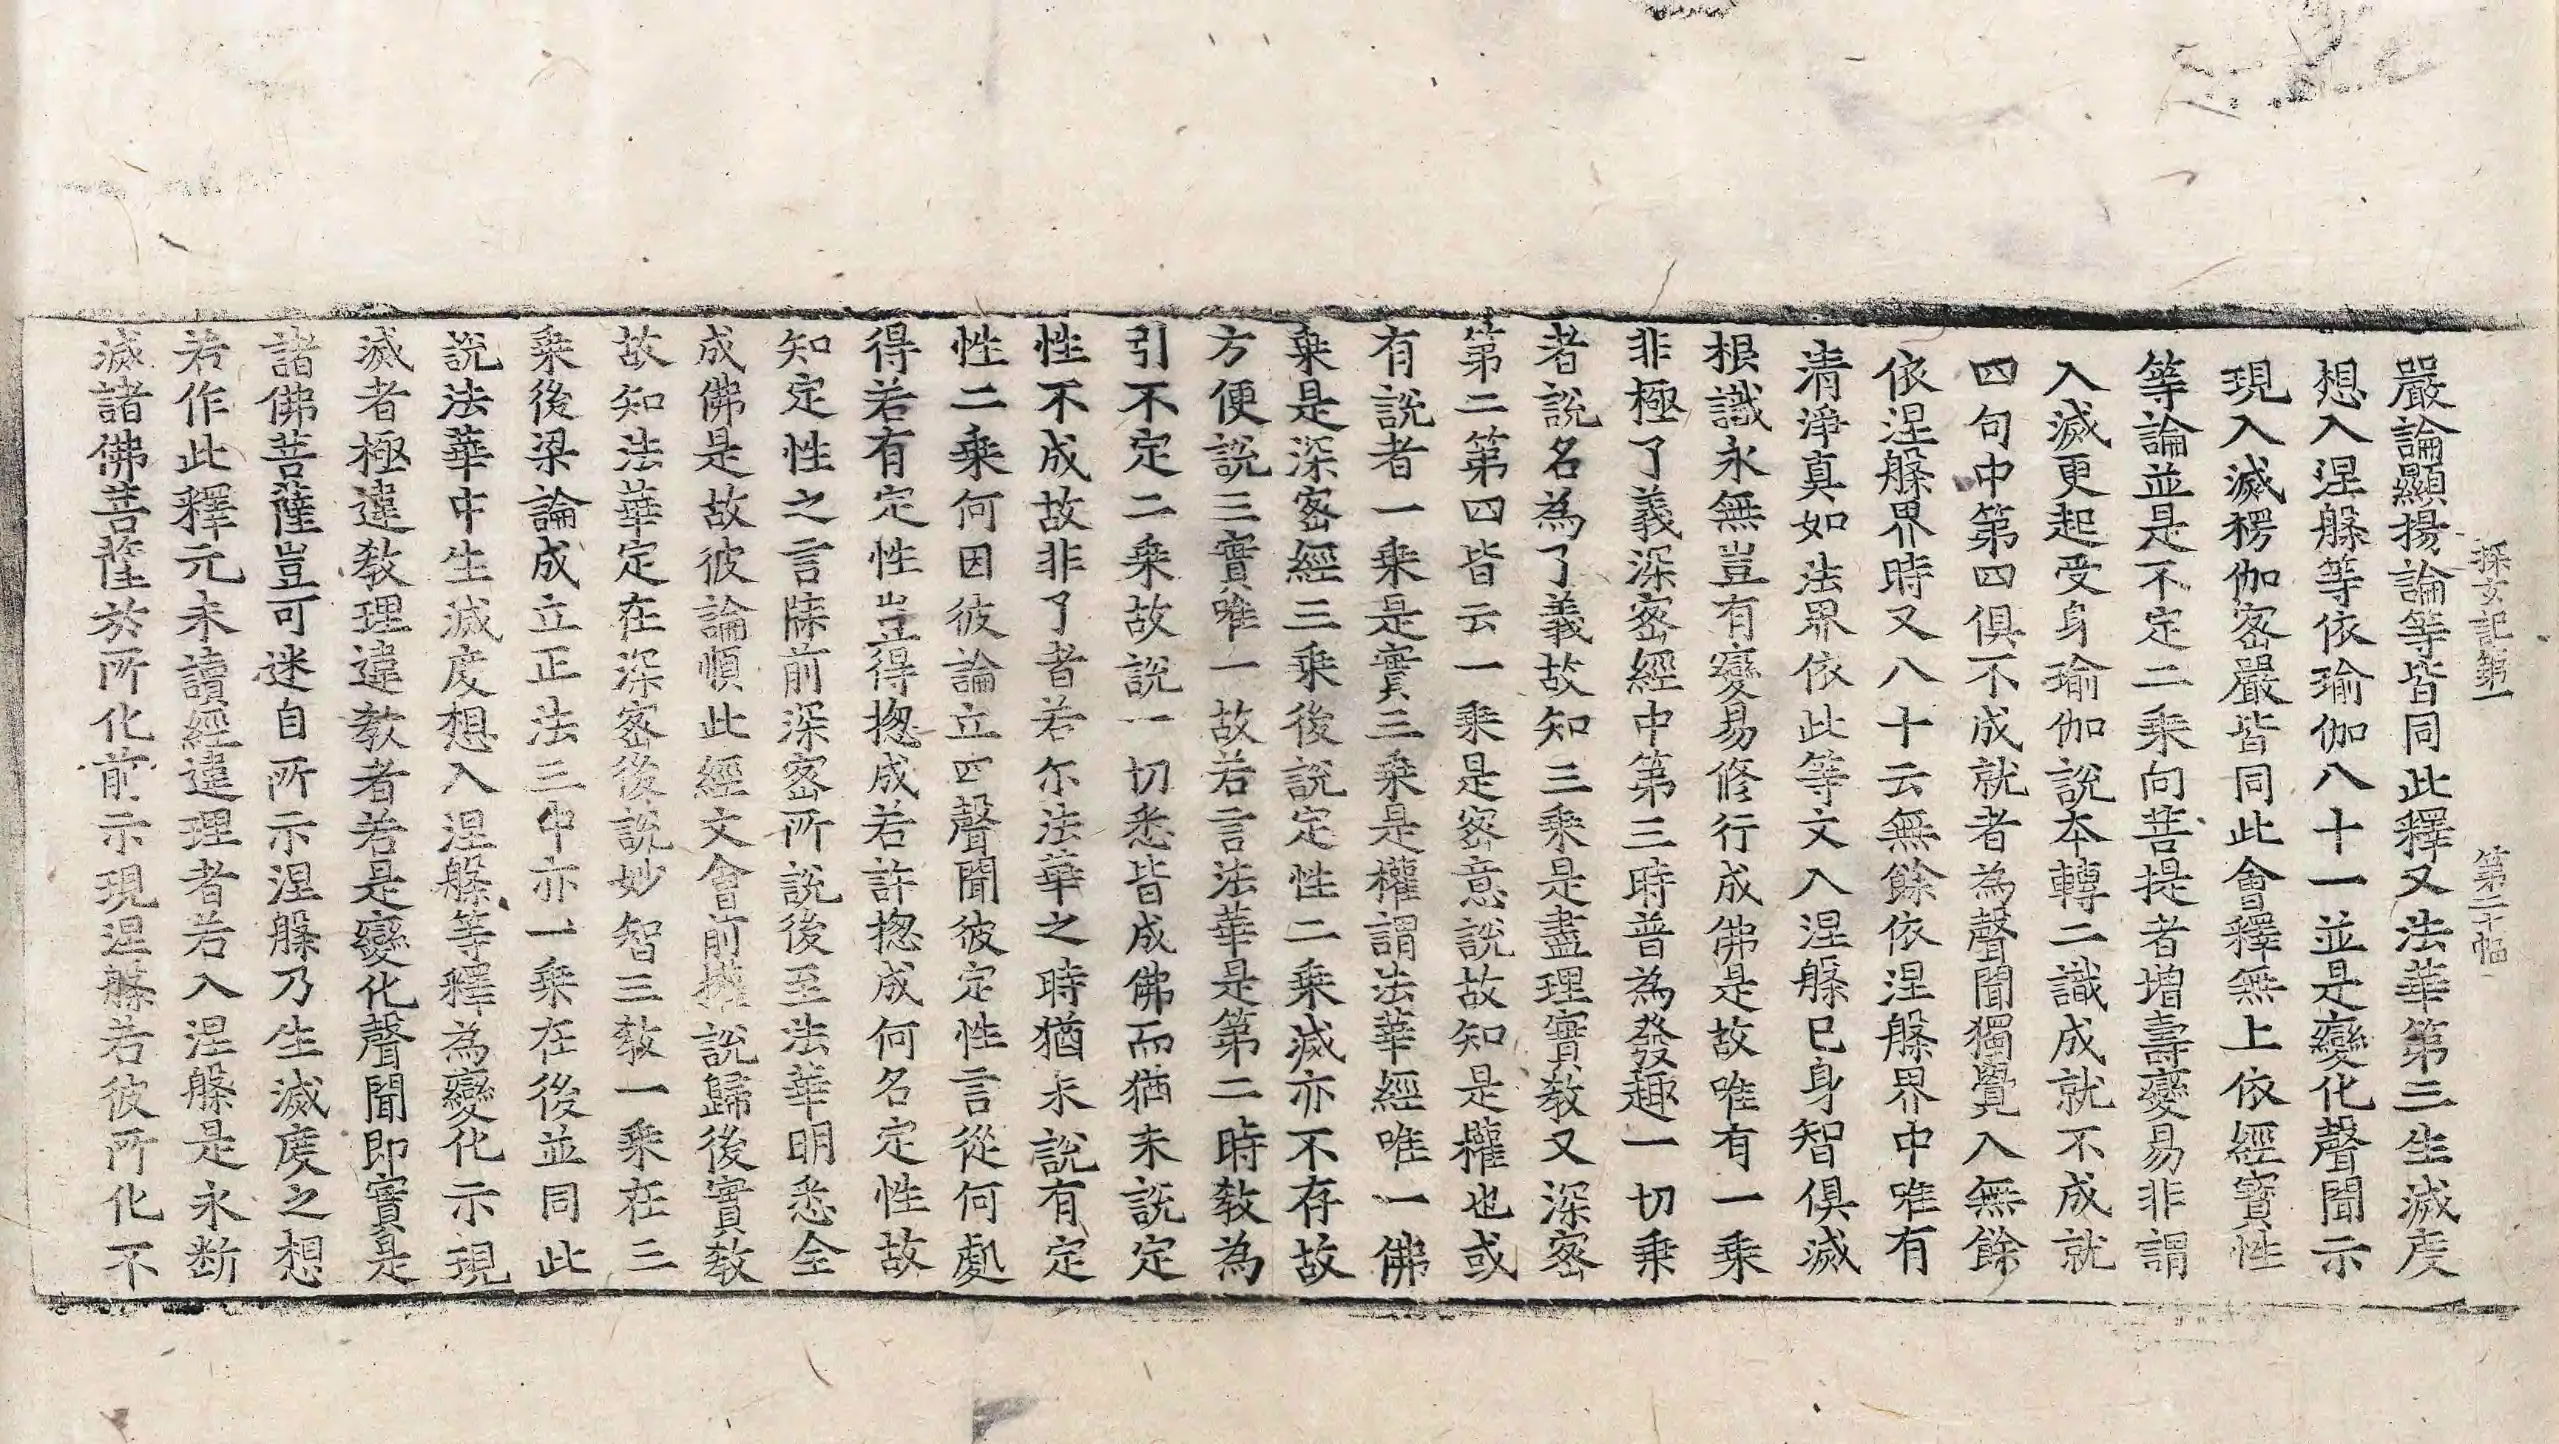 探玄記第一 第二十幅
嚴論顯揚論等皆同此釋又法華第三生滅度
想入涅槃等依瑜伽八十一並是變化聲聞示
現入滅楞伽密嚴皆同此會釋無上依經寶性
等論並是不定二乗向菩提者增壽變易非謂
入滅更起受身瑜伽說本轉二識成就不成就
四句中第四俱不成就者為聲聞獨覺入無餘
依涅槃界時又八十云無餘依涅槃界中唯有
清淨真如法界依此等文入涅槃已身智俱滅
根識永無豈有變易修行成佛是故唯有一乗
非極了義深密經中第三時普為發趣一切乗
者說名為了義故知三乗是盡理實教又深密
第二第四皆云一乗是密意說故知是權也或
有說者一乗是實三乗是權謂法華經唯一佛
乗是深密經三乗後說定性二乗滅亦不存故
方便說三實唯一故若言法華是第二時教為
引不定二乗故說一切悉皆成佛而猶未說定
性不成故非了者若尒法華之時猶未說有定
性二乗何因彼論立四聲聞彼定性言從何處
得若有定性豈得揔成若許揔成何名定性故
知定性之言牒前深密所說後至法華明悉全
成佛是故彼論順此經文會前權說歸後實教
故知法華定在深密後說妙智三教一乗在三
乗後梁論成立正法三中亦一乗在後並同此
說法華中生滅度想入涅槃等釋為變化示現
滅者極違教理違教者若是變化聲聞即實是
諸佛菩薩豈可迷自所示涅槃乃生滅度之想
若作此釋元未讀經違理者若入涅槃是永断
滅諸佛菩薩於所化前示現涅槃若彼所化不